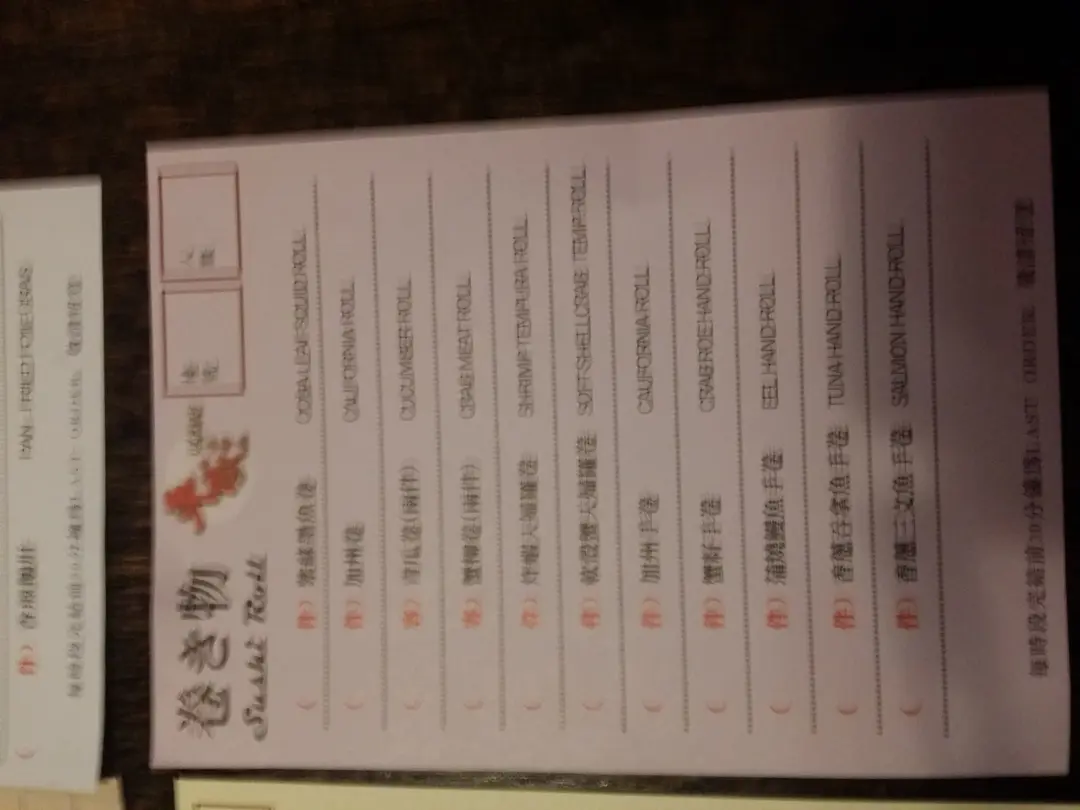 PAN-FRIED FOIE GRAS
卷き物
Sushi Roll
人
數
( 件) 紫蘇墨魚卷 OOBA LEAF SQUID ROLL
( 件) 加州卷 CALIFORNIA ROLL
( 客) 青瓜卷(兩件) CUCUMBER ROLL
( 客) 蟹柳卷(兩件) CRAB MEAT ROLL
( 件) 炸蝦天婦羅卷 SHRIMP TEMPURA ROLL
( 件) 軟殼蟹天婦羅卷 SOFT SHELL CRAB TEMP. ROLL
( 件) 加州手卷 CALIFORNIA ROLL
( 件) 蟹籽手卷 CRAB ROE HAND ROLL
( 件) 蒲燒鰻魚手卷 EEL HAND ROLL
( 件) 香蔥吞拿魚手卷 TUNA HAND ROLL
( 件) 香蔥三文魚手卷 SALMON HAND ROLL
每時段完結前30分鐘為LAST ORDER,